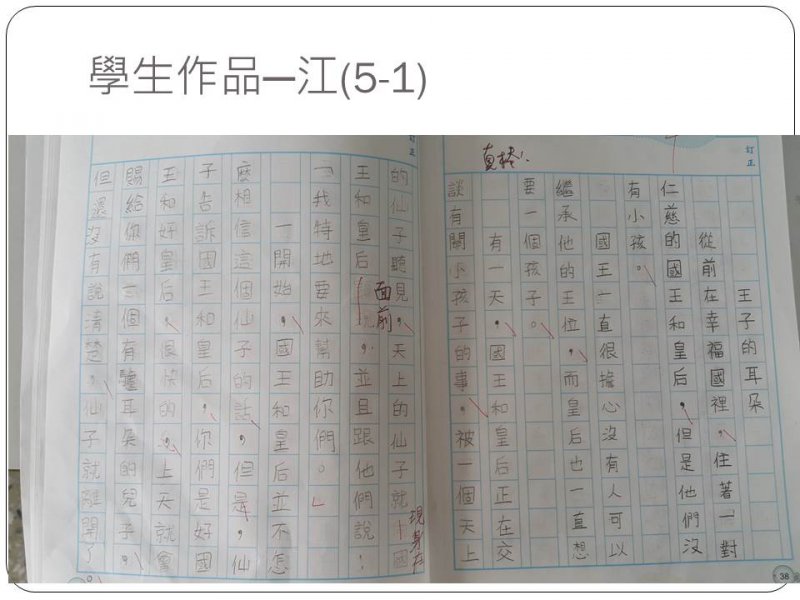 學生作品—江(5-1)
訂正
王子的耳朵
從前在幸福國裡,住著一對
仁慈的國王和皇后,但是他們沒
有小孩。
國王一直很擔心沒有人可以
繼承他的王位,而皇后也一直想
要一個孩子。
有一天,國王和皇后正在交
談有關小孩子的事,被一個天上
真棒!
38
訂正
的仙子聽見,天上的仙子就 國
現身在
王和皇后 ,並且跟他們說:
面前
「我特地要來幫助你們。」
一開始,國王和皇后並不怎
麼相信這個仙子的話,但是,仙
子告訴國王和皇后,你們是好國
王和好皇后,很快的,上天就會
賜給你們一個有驢耳朵的兒子,
但還沒有說清楚,仙子就離開了。